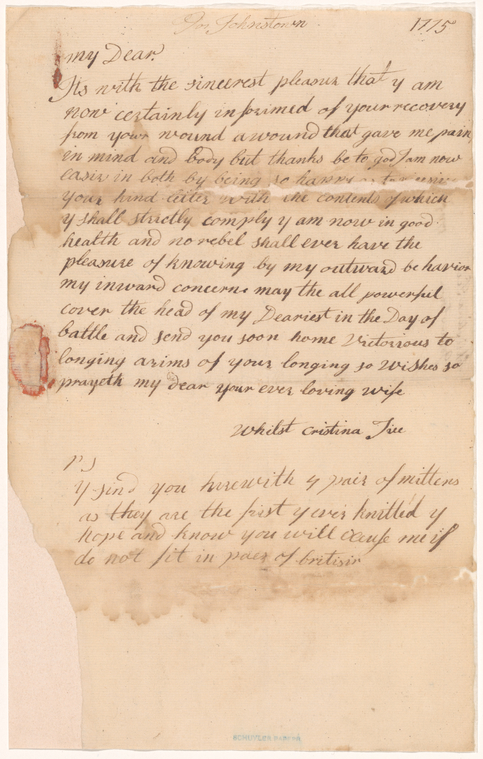 Johnstown 1775
my Dear
Its with the sincerest pleasur that y am
now certainly informed of your recovery
from your wound a wound that gave me pain
in mind and body but thanks be to god I am now
easir in both by being so happy as to
your kind letter with the contents of which
y shall strictly comply y am now in good
health and no rebel shall ever have the
pleasure of knowing by my outward behavior
my inward concerne may the all powerful
cover the head of my Deariest in the Day of
battle and send you soon home Victorious to
longing arims of your longing so wishes so
prayeth my dear your ever loving wife
Whilst Cristina
PS
y send you herewith 4 pair of mittens
as they are the first y ever knitted y
hope and know you will me if
do not fit in of
SCHUYLER PAPERS